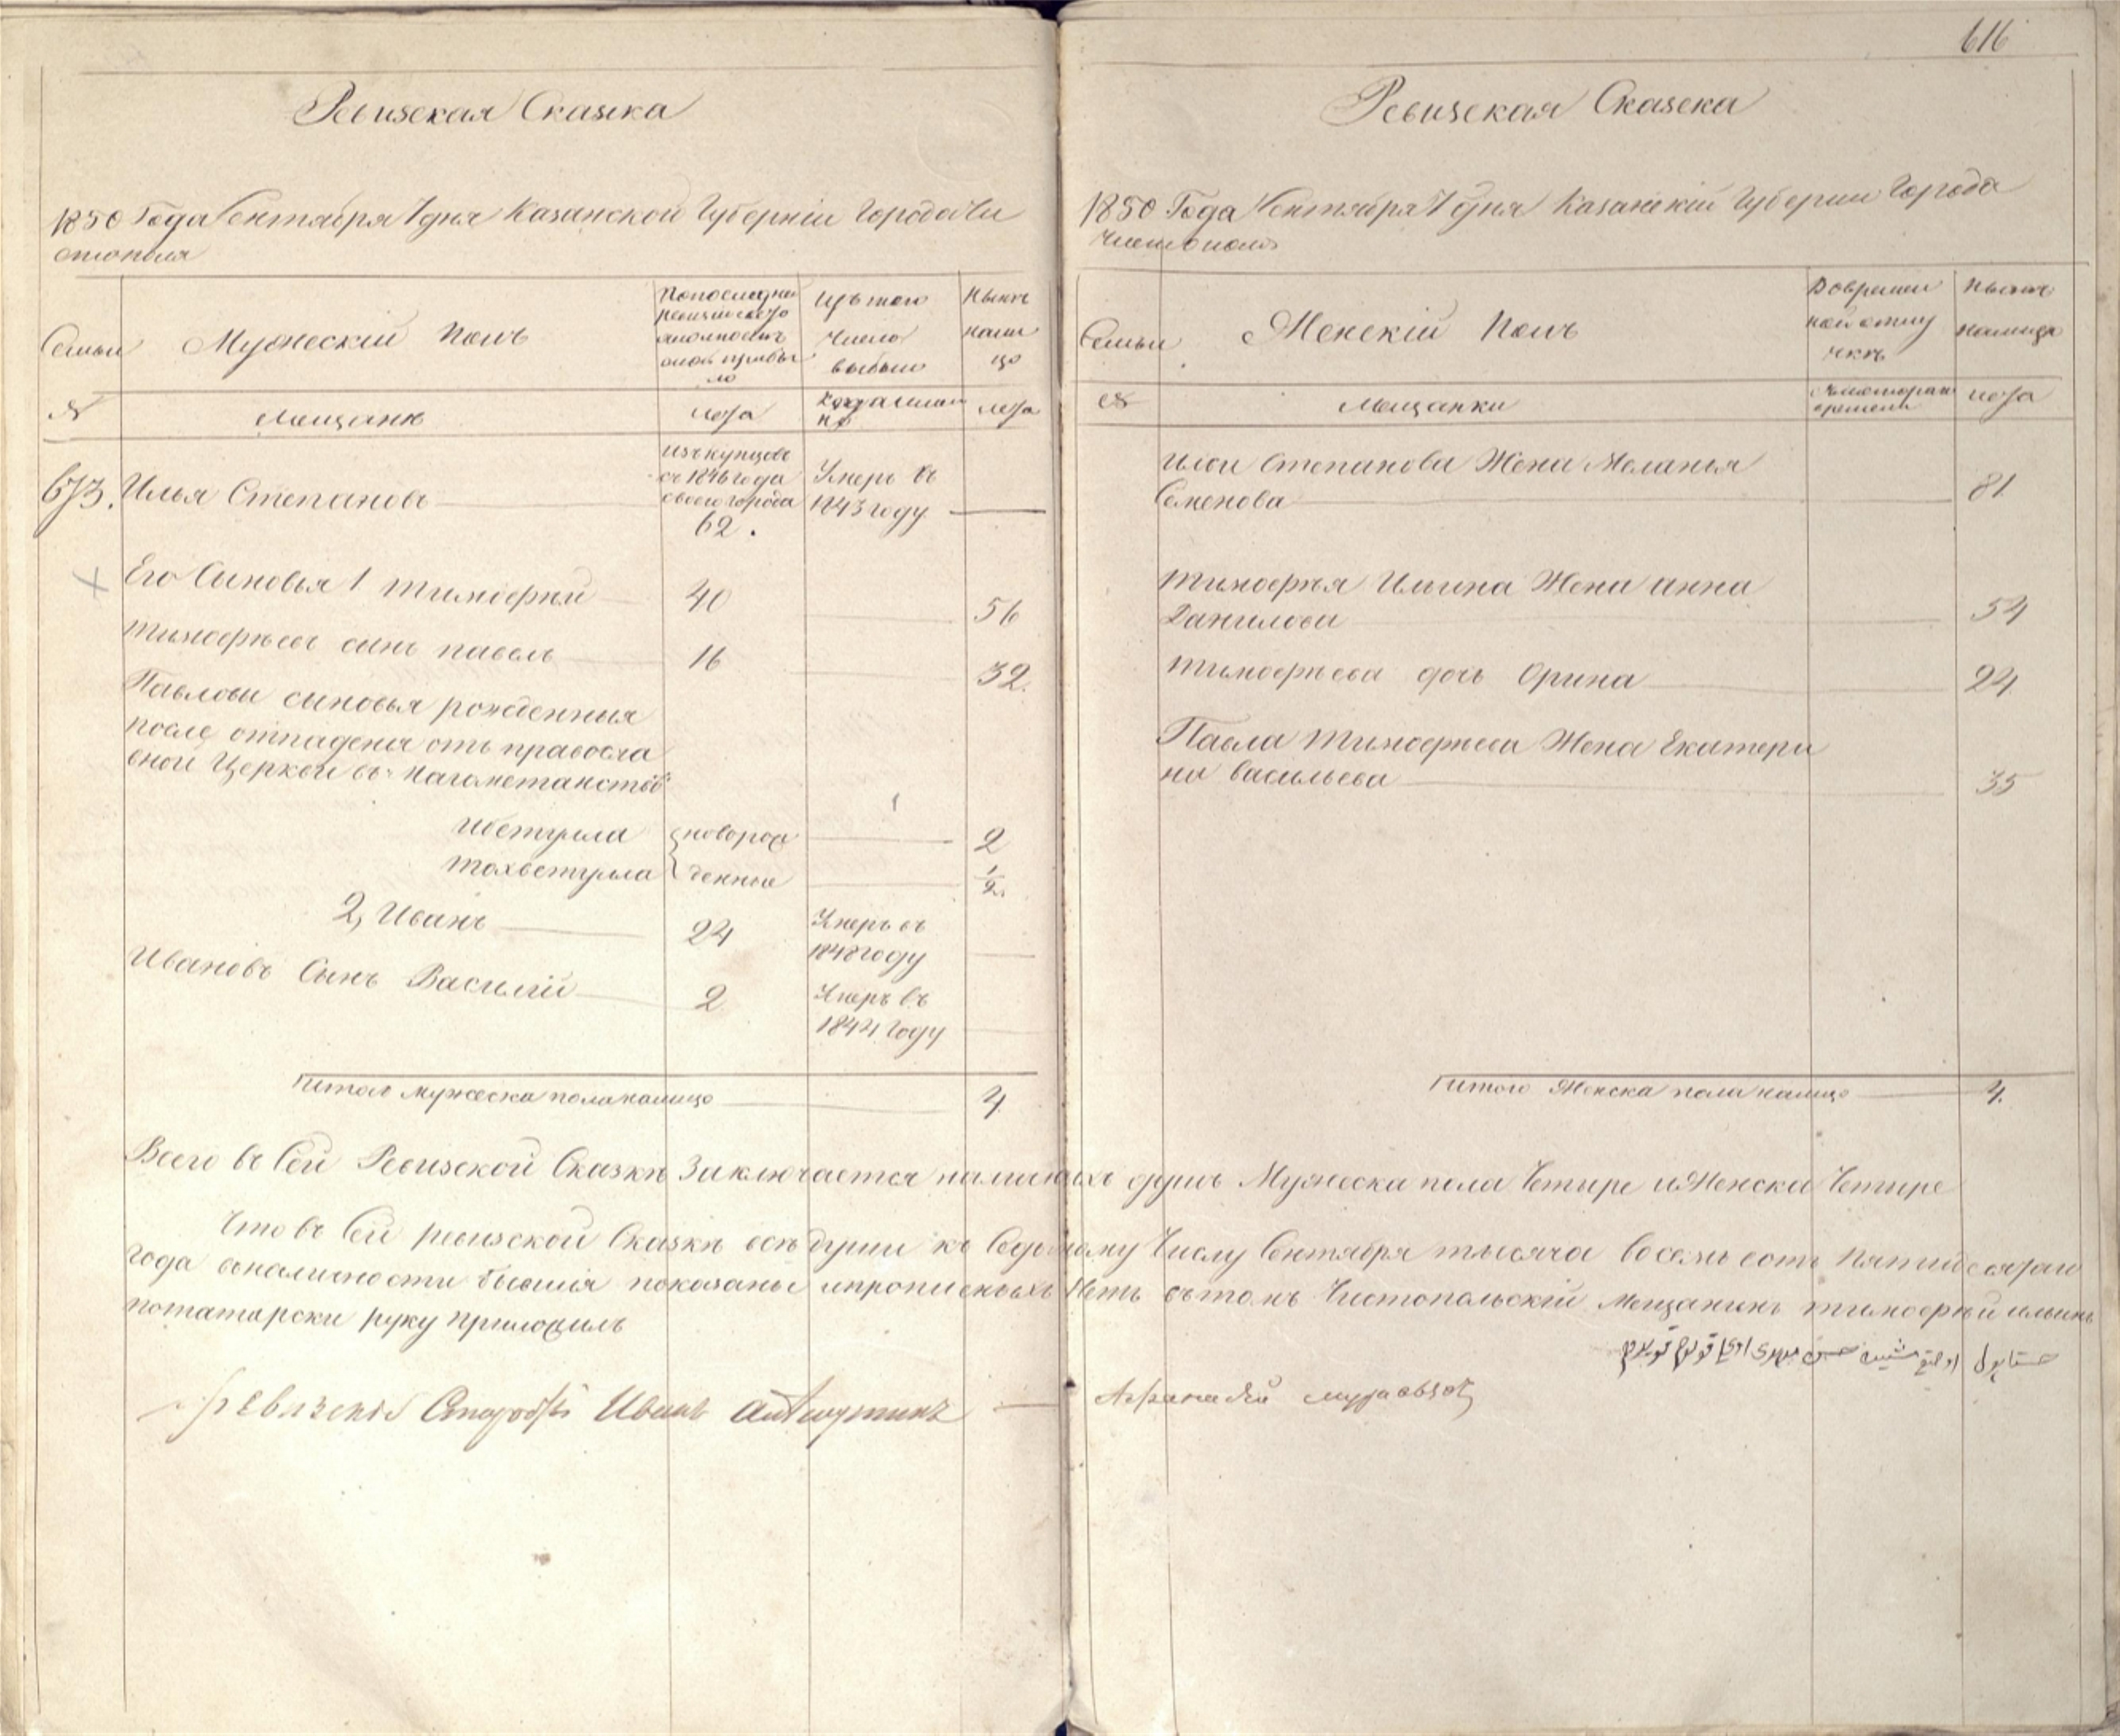 616
Ревизская Сказка
1850 Года Сентября 7 дня Казанской Губерніи Города Чи
стополя
Семьи
Мужескій полъ
По последней
ревизіи состо
яло и после
оной прибы
ло
Изъ того
числа
выбыло
Ныне
нали
цо
№
Мещане
лета
Когда имян
но
лета
673. Илья Степановъ
изъ купцовъ
съ 1846 года
своего города
62.
Умеръ въ
1843 году
Его Сыновья 1 Тимофей 40 56
Тимофеевъ сынъ Павелъ 16 32.
Павловы сыновья рожденныя
после отпаденія отъ правосла
вной Церкви въ магометанство
Ибетулла новорож 2
Тохветулла денные 1/2.
2, Иванъ 24 Умеръ въ
1848 году
Ивановъ Сынъ Василій 2 Умеръ въ
1844 году
Итого мужеска пола налицо 4
Ревизская Сказка
1850 Года Сентября 7 дня Казанскій Губерніи Города
Чистополя
Семьи
Женскій Полъ
Во времен
ной отлу
чке
Ныне
налицо
№
Мещанки
С котораго
времени
лета
Ильи Степанова Жена Меланья
Семенова 81
Тимофея Ильина Жена Анна
Данилова 54
Тимофеева дочь Орина 24
Павла Тимофеева Жена Екатери
на Васильева 35
Итого Женска пола налицо 4.
Всего въ Сей Ревизской Сказке Заключается наличныхъ душъ Мужеска пола Четыре и Женска Четыре
Что въ Сей ревизской Сказке все души къ Седьмому Числу Сентября тысяча восемь сотъ Пятидесятаго
года въ наличности бывшія показаны и прописныхъ Нетъ въ томъ Чистопольскій Мещанинъ Тимофей Ильинъ
потатарски руку приложилъ
Ревизскій Староста Иванъ